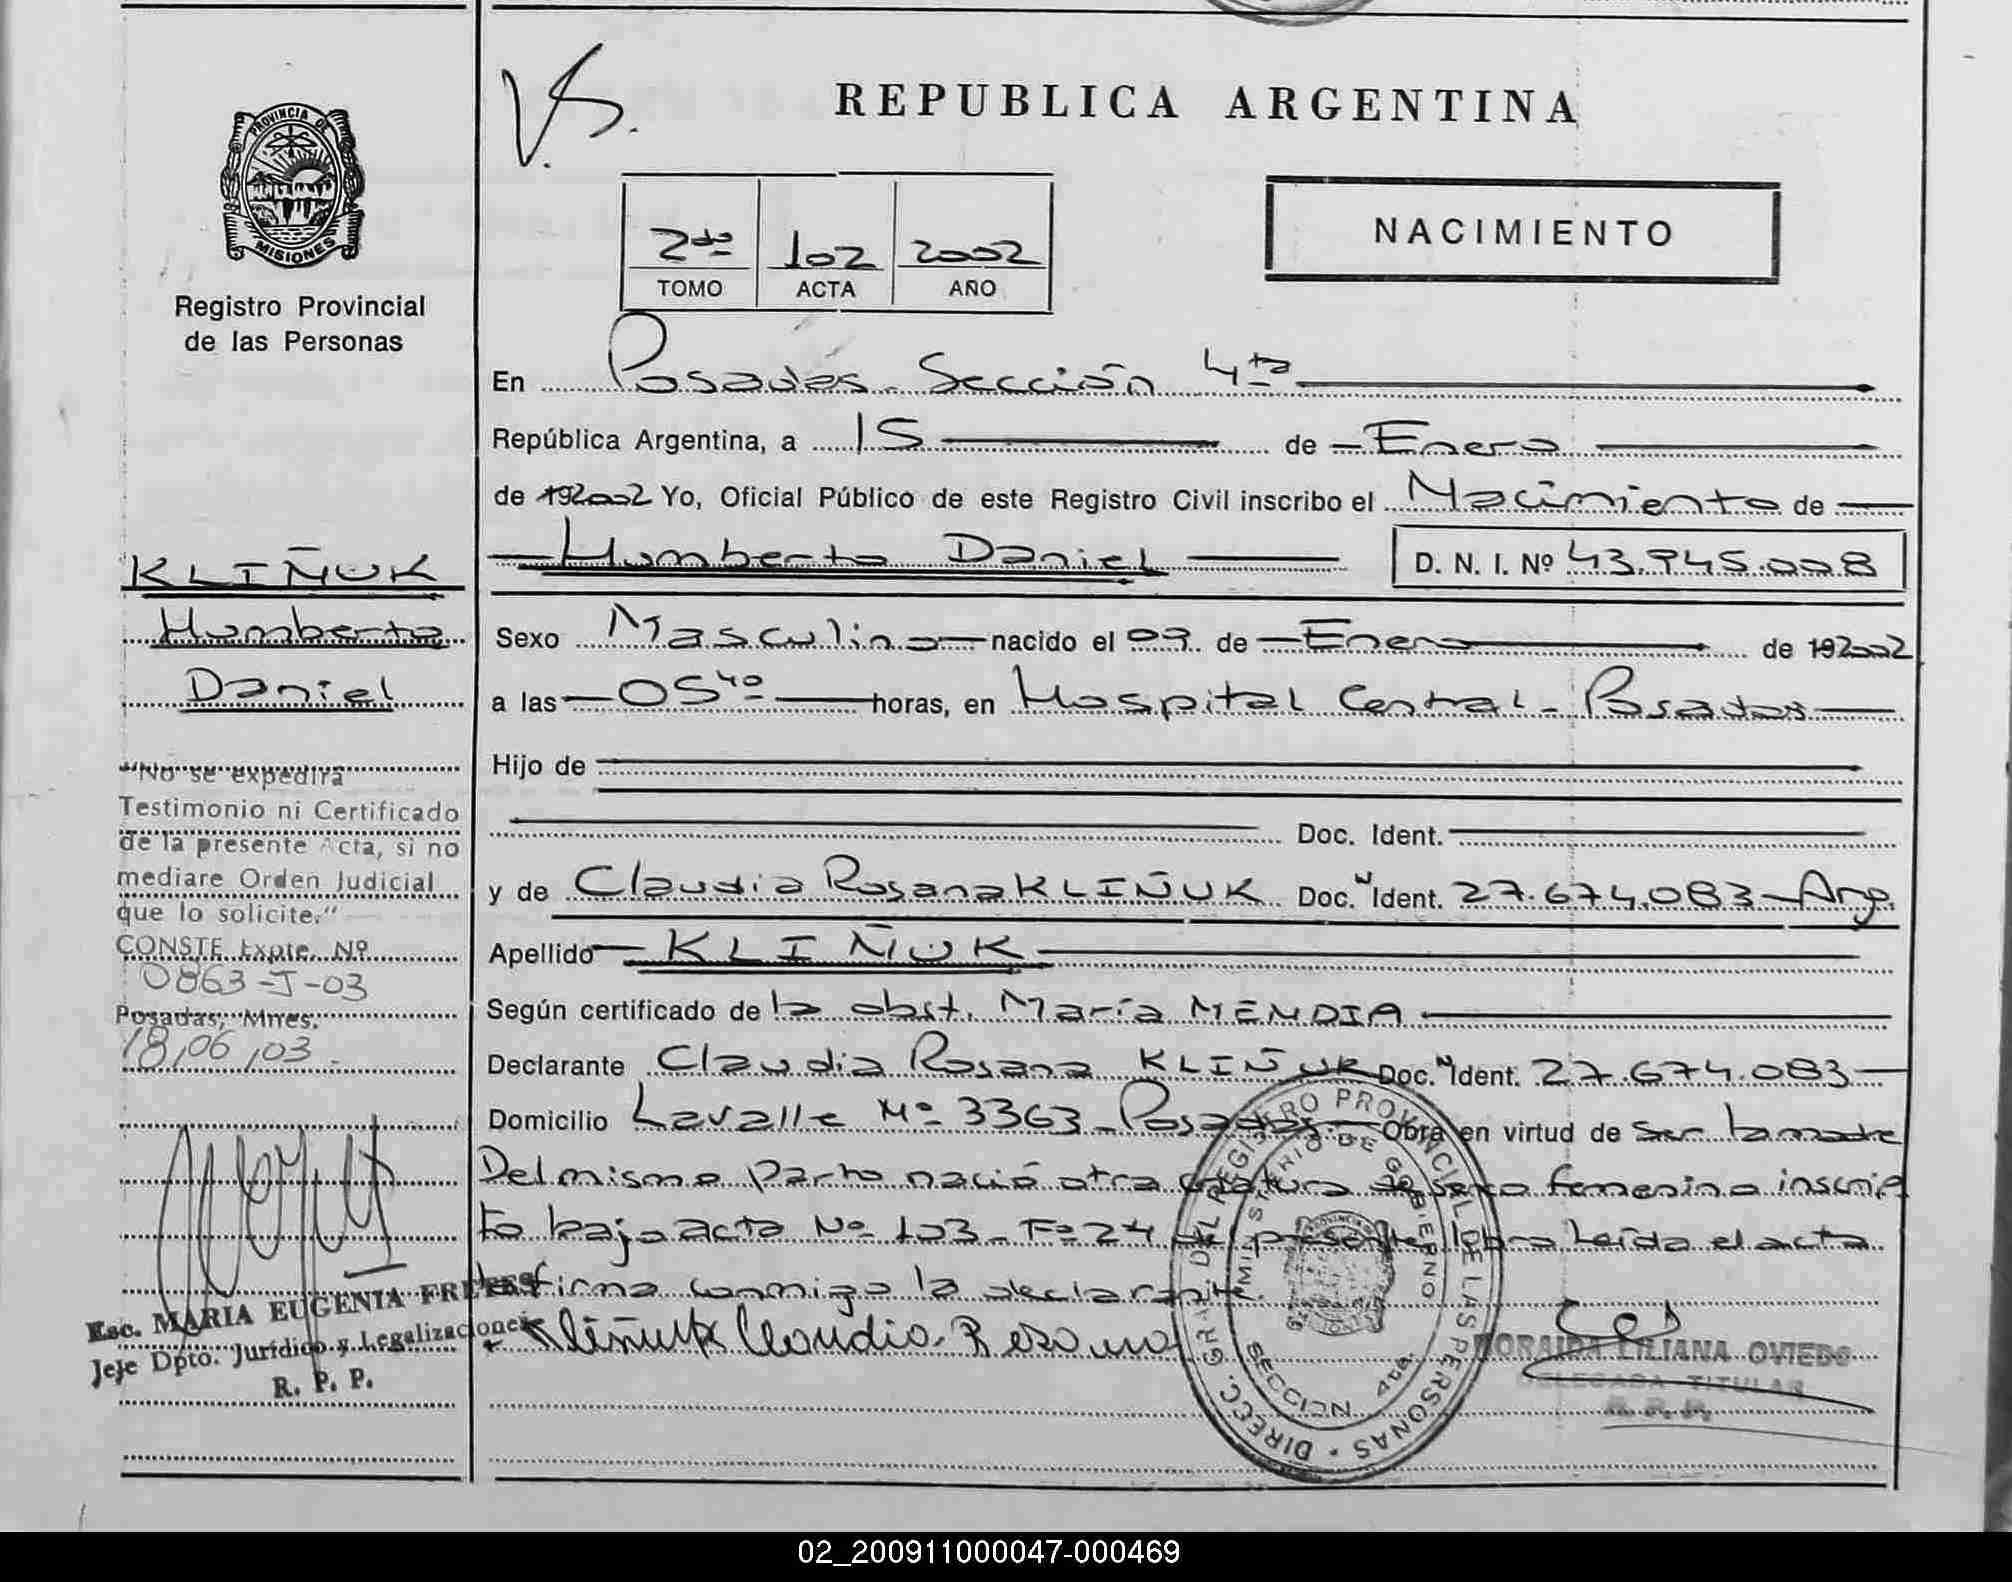 PROVINCIA DE
MISIONES
Registro Provincial
de las Personas
KLIÑUK
Humberto
Daniel
"No se expedirá
Testimonio ni Certificado
de la presente Acta, si no
mediare Orden Judicial
que lo solicite."
CONSTE Expte. Nº
0863-J-03
Posadas, Mnes.
18,06,03.
Esc. MARIA EUGENIA
Jeje Dpto. Jurídico y Legalizaciones
R. P. P.
V.S.
REPUBLICA ARGENTINA
2do 102 2002
TOMO ACTA AÑO
NACIMIENTO
En Posadas - Sección 4ta
República Argentina, a 15 de Enero
de 192002 Yo, Oficial Público de este Registro Civil inscribo el Nacimiento de
Humberto Daniel D. N. I. Nº 43.945.008
Sexo Masculino nacido el 09 de Enero de 192002
a las 05 40 horas, en Hospital Central - Posadas
Hijo de
Doc. Ident.
y de Claudia Rosana KLIÑUK Doc. Ident. 27.674.083 - Arg.
Apellido KLIÑUK
Según certificado de la obst. María MENDIA
Declarante Claudia Rosana KLIÑUK Doc. Ident. 27.674.083
Domicilio Lavalle Nº 3363 - Posadas Obra en virtud de ser la madre
Del mismo parto nació otra criatura de sexo femenino inscrip
to bajo acta Nº 103 - Fº 24 presente libro Leída el acta
la firma conmigo la declarante.
Kliñuk Claudia Rosana
DIRECC. GRAL. DEL REGISTRO PROVINCIAL DE LAS PERSONAS
MINISTERIO DE GOBIERNO
SECCION 4ta.
DORAIDA LILIANA OVIEDO
DELEGADA TITULAR
R. P. P.
02_200911000047-000469